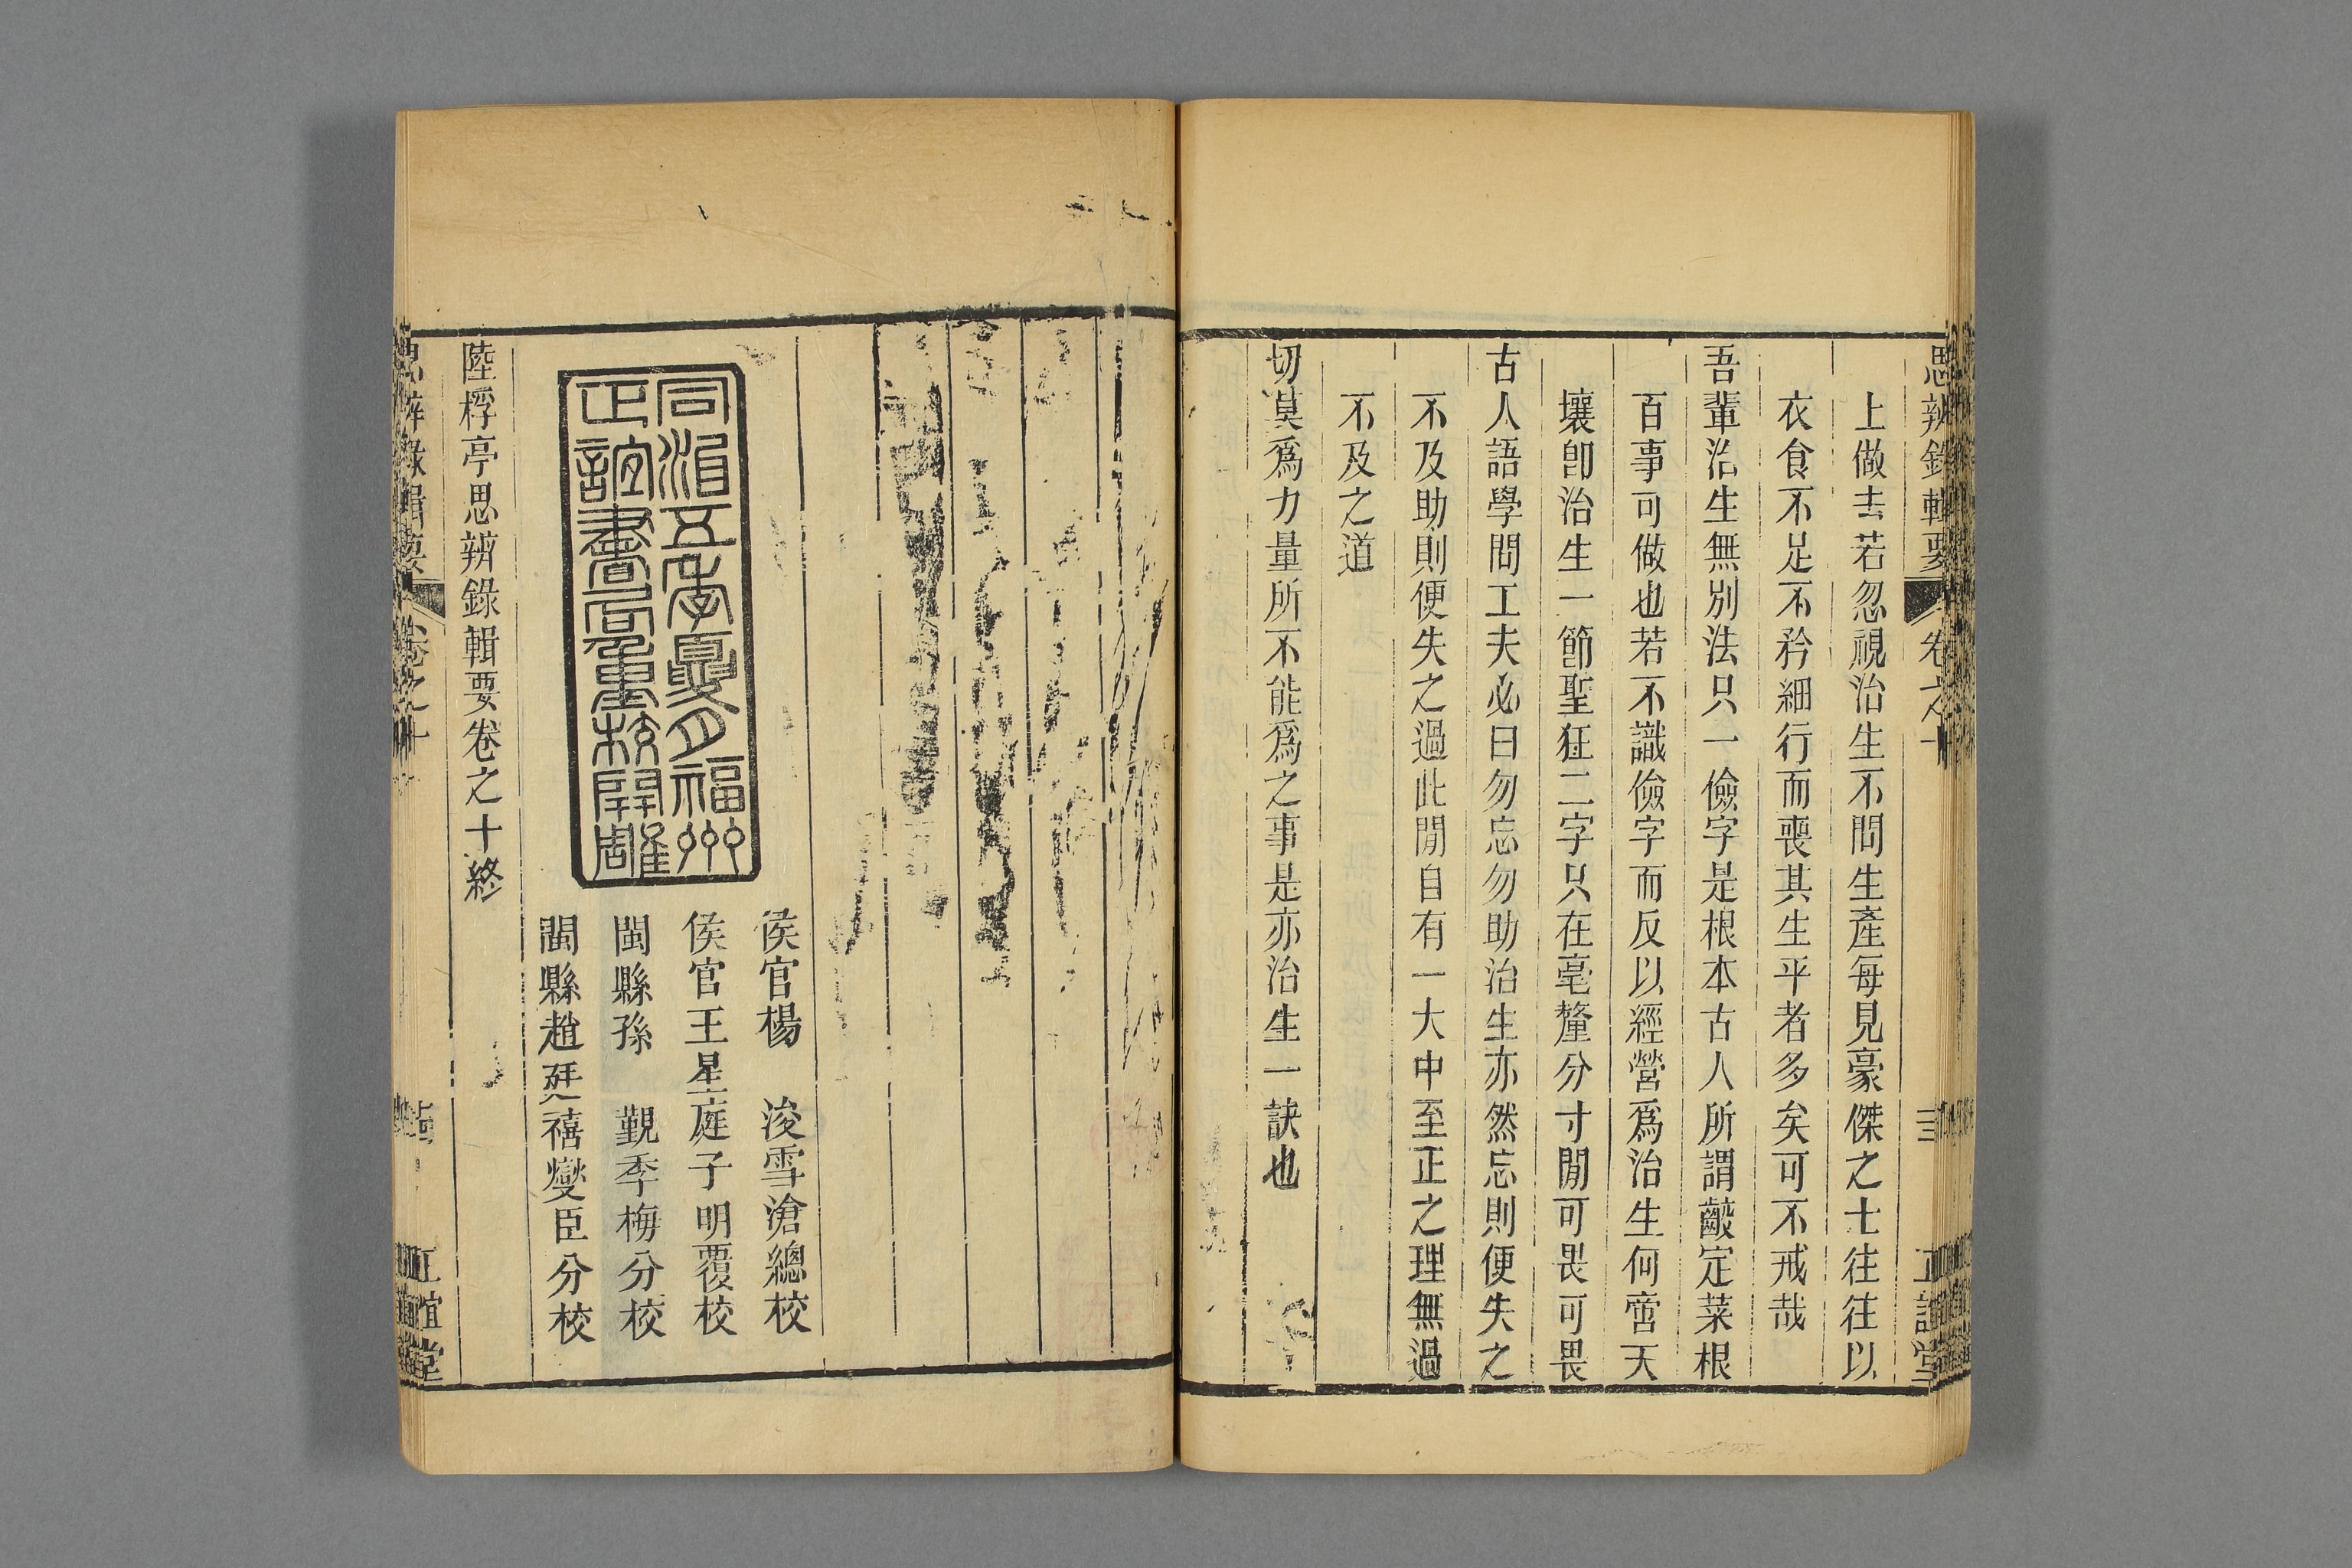 思辨錄輯要 卷之十 正誼堂
上做去若忽視治生不問生產每見豪傑之士往往以
衣食不足不矜細行而喪其生平者多矣可不戒哉
吾輩治生無別法只一儉字是根本古人所謂齩定菜根
百事可做也若不識儉字而反以經營爲治生何啻天
壤卽治生一節聖狂二字只在毫釐分寸閒可畏可畏
古人語學問工夫必曰勿忘勿助治生亦然忘則便失之
不及助則便失之過此閒自有一大中至正之理無過
不及之道
切莫爲力量所不能爲之事是亦治生一訣也
同治五年夏月福州
正誼書局重校開雕
侯官楊 浚雪滄總校
侯官王星庭子明覆校
閩縣孫 觀季梅分校
閩縣趙廷禧燮臣分校
陸桴亭思辨錄輯要卷之十終
思辨錄輯要 卷之十 正誼堂